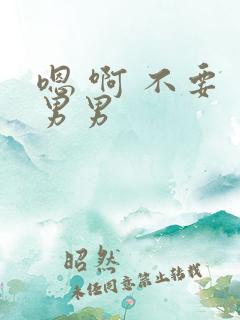 嗯 啊 不要
男男
昭然
未经同意禁止转载